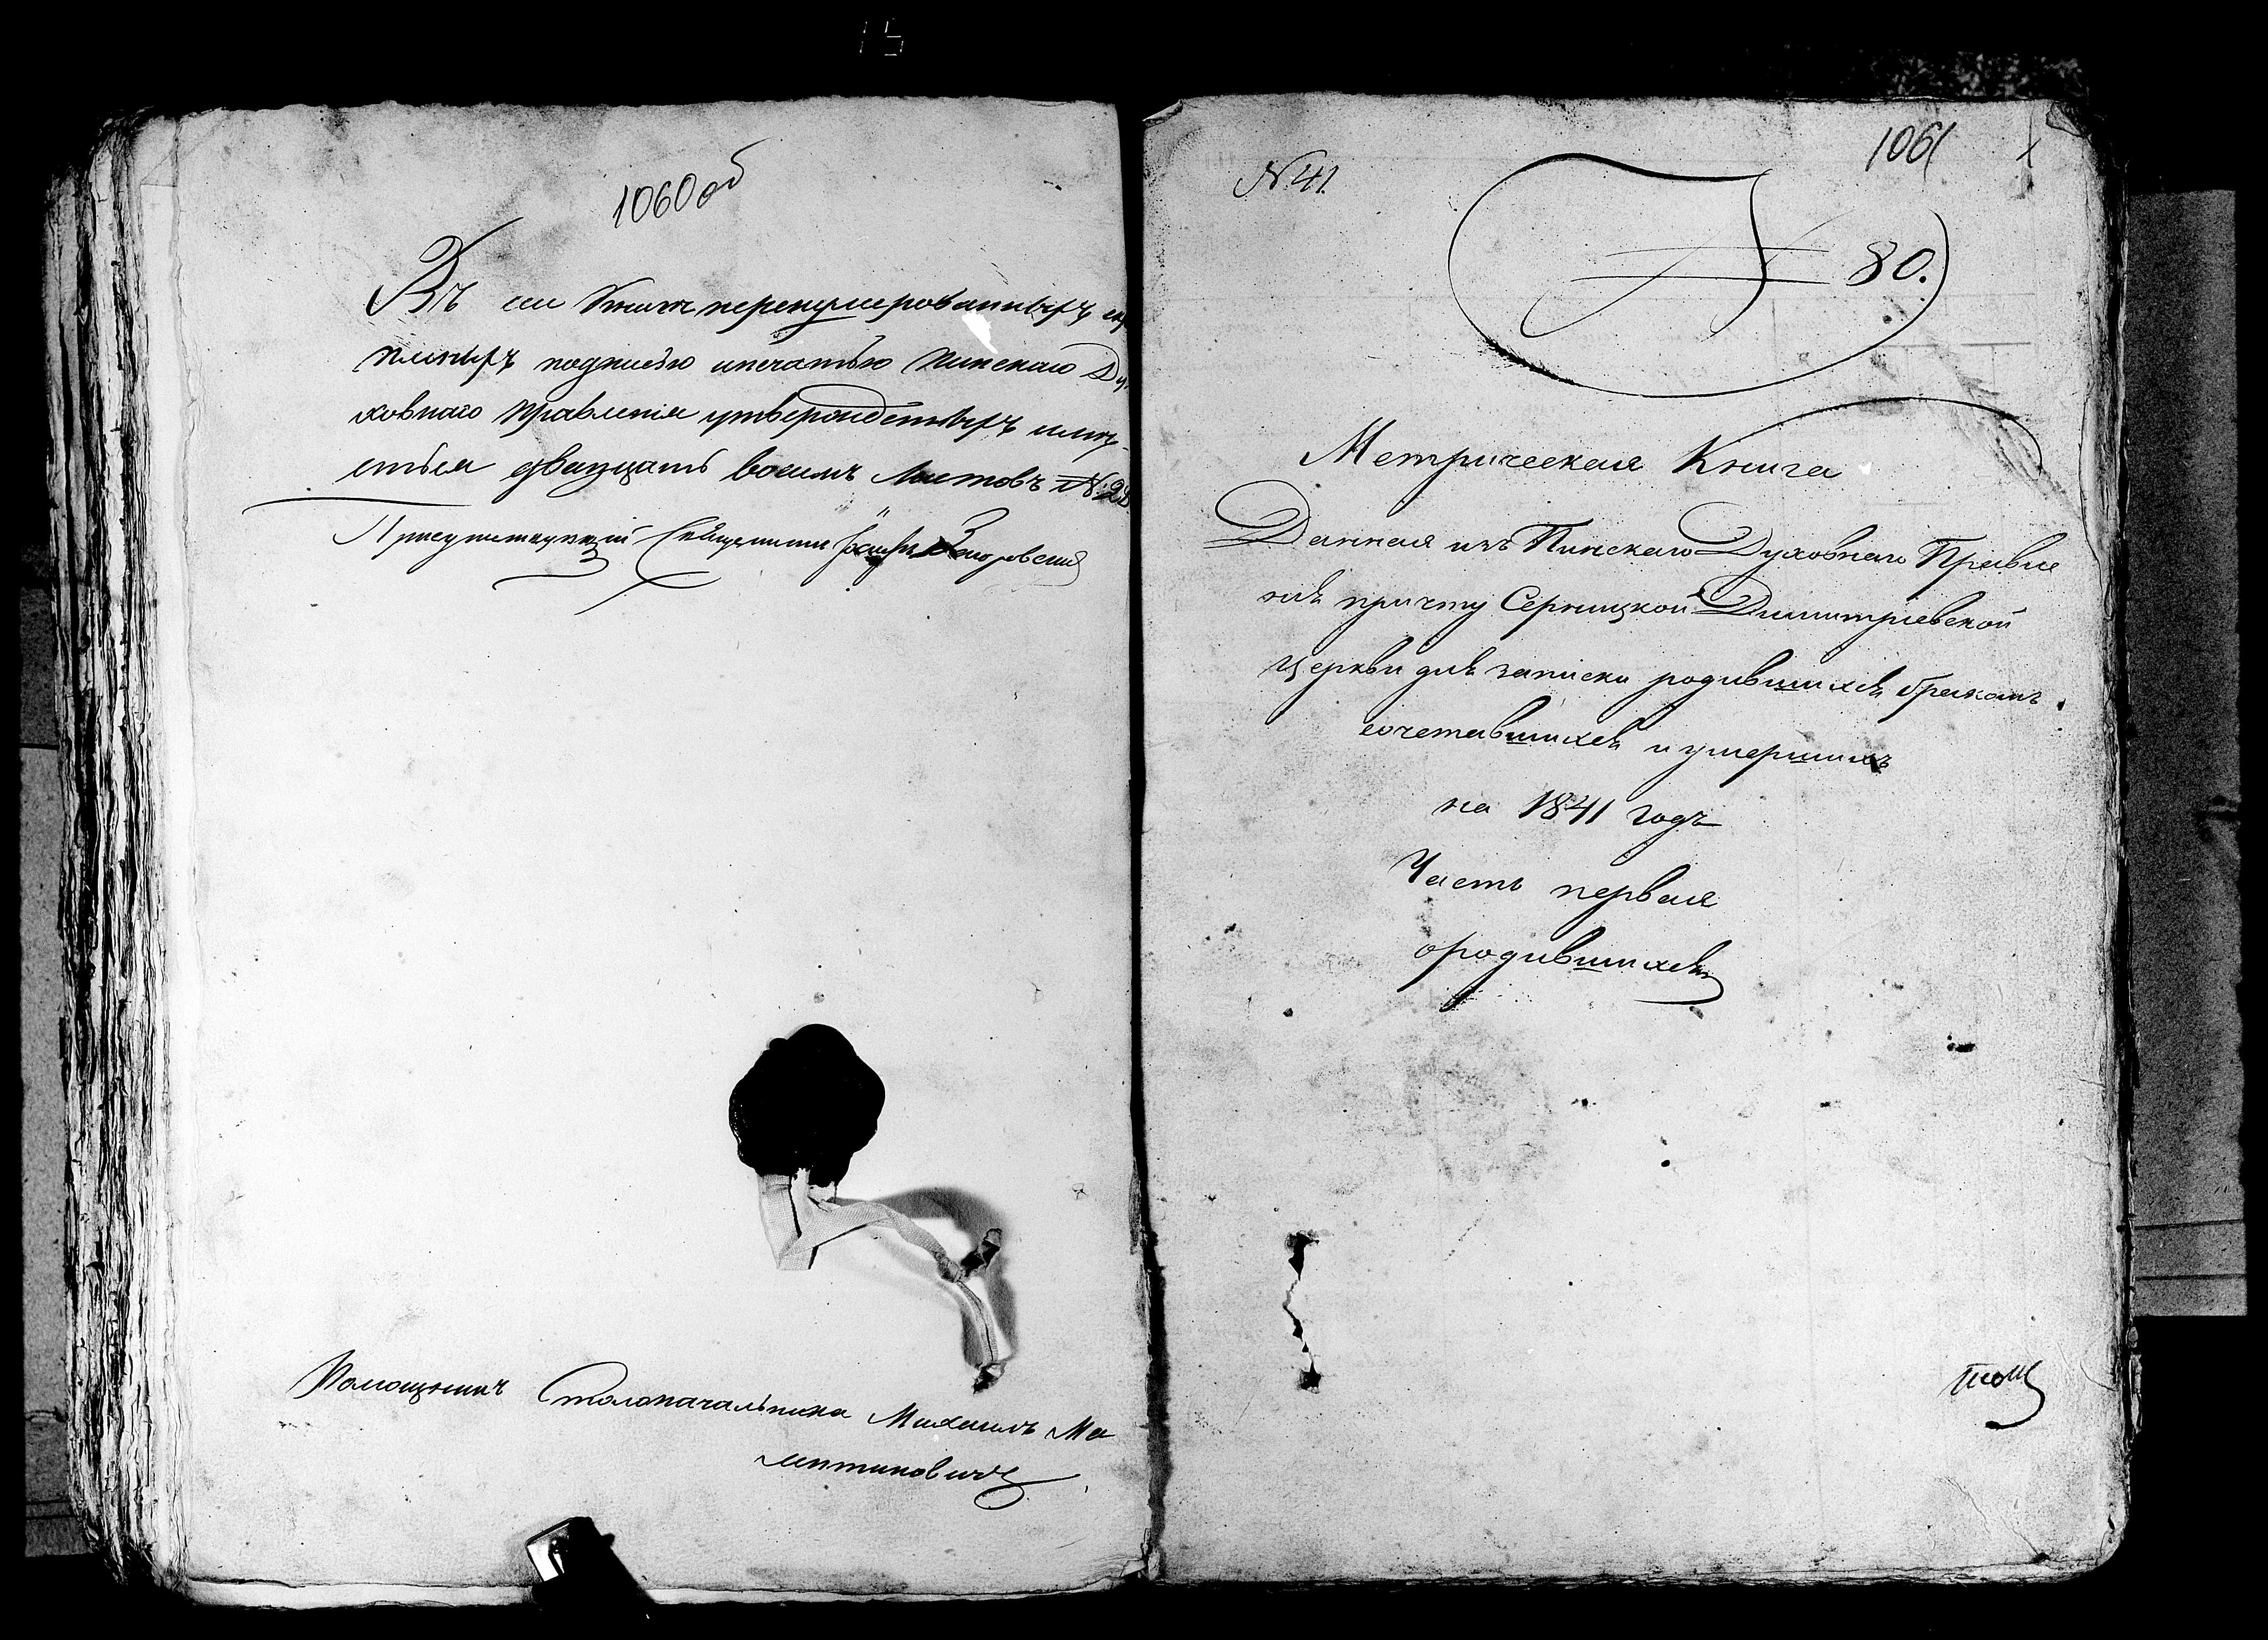 15
1060 об
Въ сей Книги перенумерованныхъ скр
пленыхъ подписью и печатью Пинскаго Ду
ховнаго Правленія утвержденныхъ имѣ-
ется двадцать восемь Листовъ № 28
Присутствующій Священникъ
Помощникъ Столоначальника Михаилъ Ма
1061
№ 41
№ 80.
Метрическая Книга
Данная изъ Пинскаго Духовнаго Правле
нія причту Серницкой Димитріевской
Церкви для записки родившихся бракомъ
сочетавшихся и умершихъ
на 1841 годъ
Часть первая
о родившихся